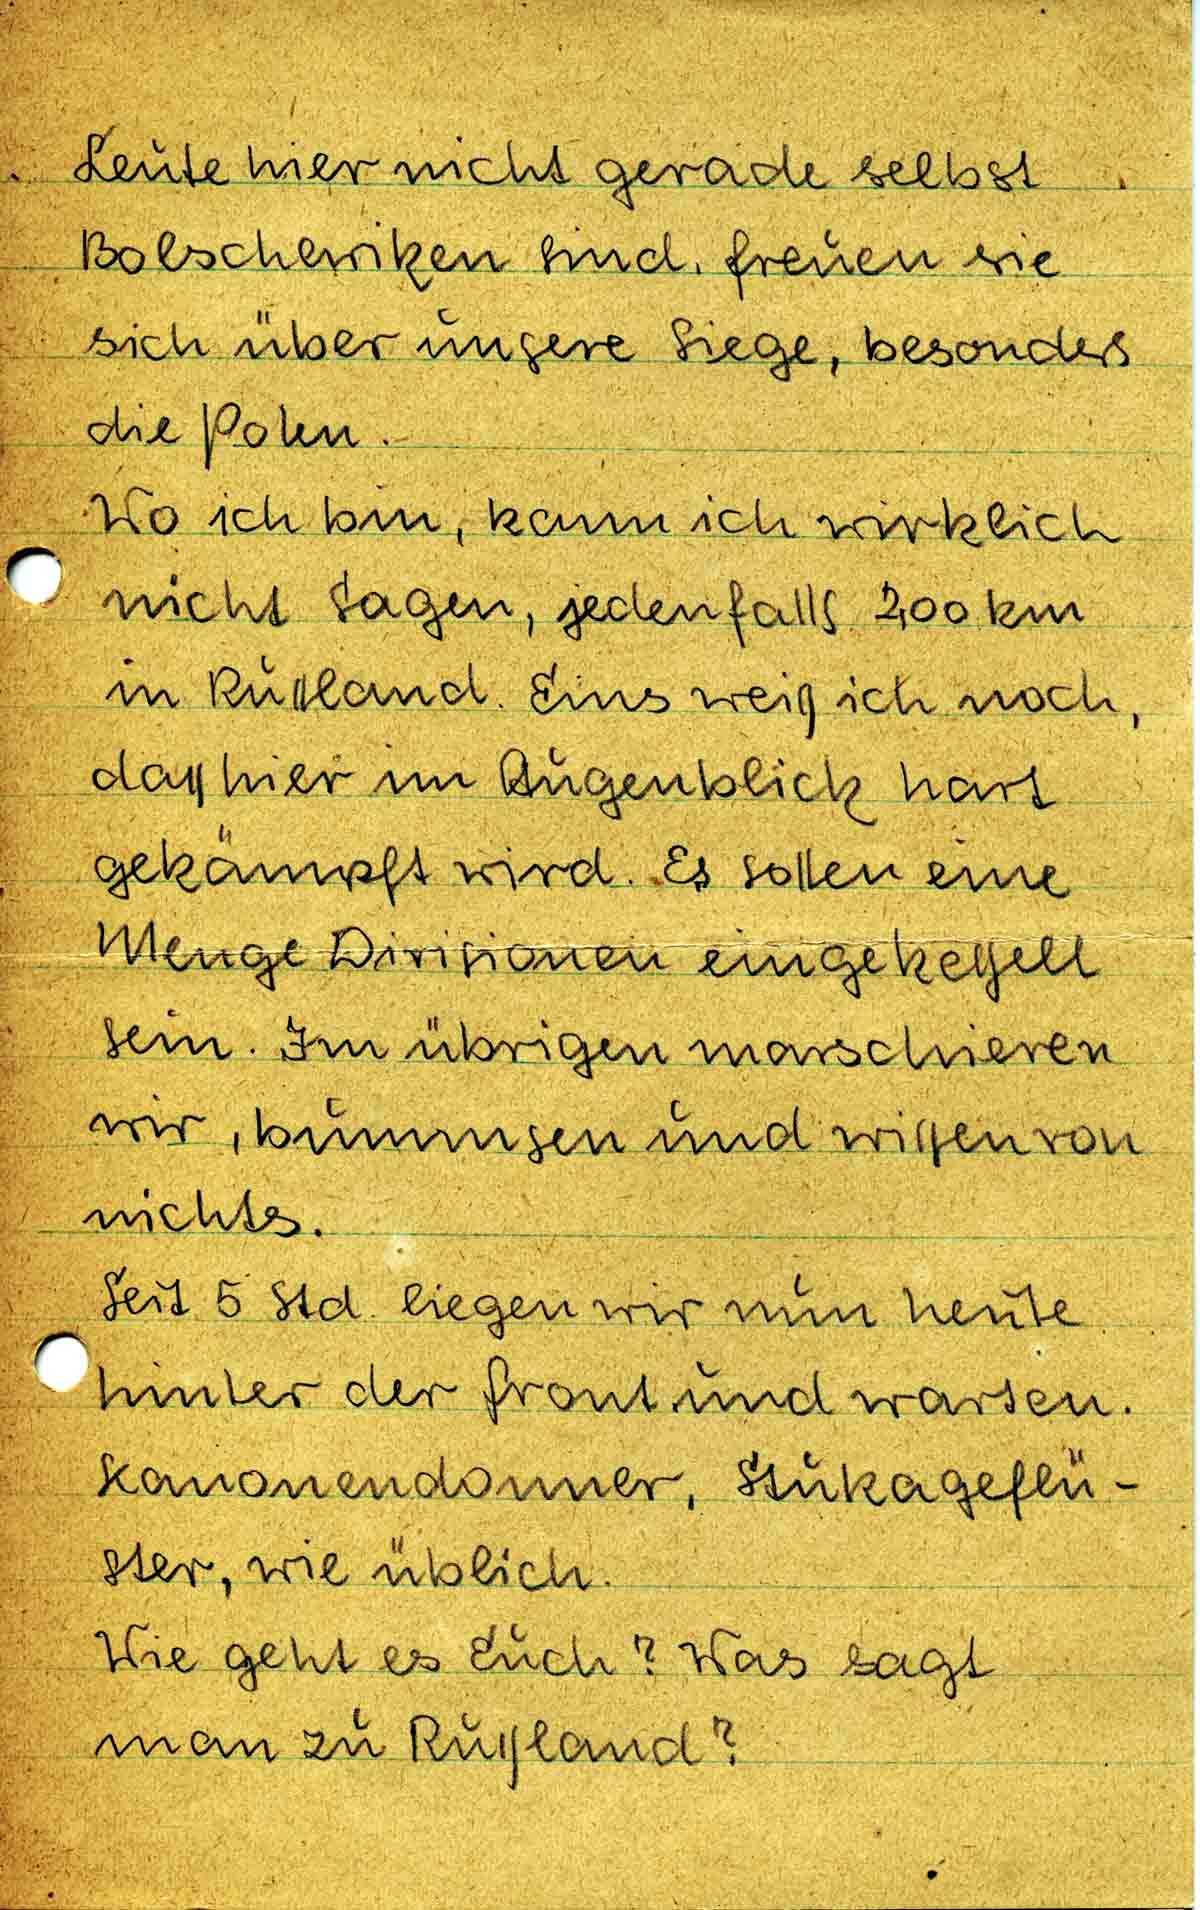 Leute hier nicht gerade selbst
Bolschewiken sind, freuen sie
sich über unsere Siege, besonders
die Polen.
Wo ich bin, kann ich wirklich
nicht sagen, jedenfalls 200 km
in Rußland. Eins weiß ich noch,
daß hier im Augenblick hart
gekämpft wird. Es sollen eine
Menge Divisionen eingekesselt
sein. Im übrigen marschieren
wir, bummsen und wissen von
nichts.
Seit 5 Std. liegen wir nun heute
hinter der Front und warten.
Kanonendonner, Stukageflü-
ster, wie üblich.
Wie geht es Euch? Was sagt
man zu Rußland?